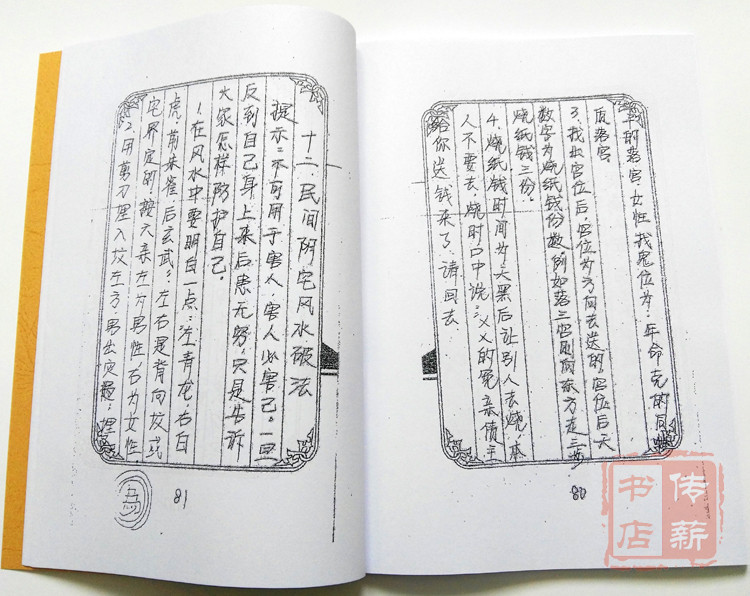 年的落宫，女性找鬼位为：年命克的同性
质落宫
3、找出宫位后，宫位为方向去送的宫位后天
数字为烧纸钱份数例如落三宫则向东方走三步
烧纸钱三份。
4、烧纸钱时间为天黑后让别人去烧，本
人不要去，烧时口中说：义义的冤亲债主
给你送钱来了，请回去
80
十二、民间阴宅风水破法
提示：不可用于害人，害人必害己。一旦
反到自己身上来后患无穷，只是告诉
大家怎样防护自己。
1、在风水中要明白一点：左青龙，右白
虎，前朱雀，后玄武；左右是背向坟或
宅界定的按六亲左为男性，右为女性
2、用剪刀埋入坟左方，男出灾题，埋
81
传薪
书店